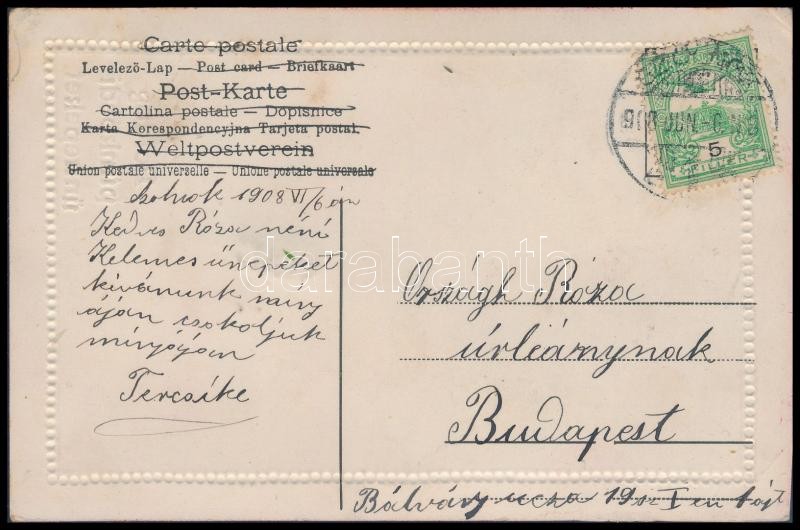 Carte postale
Levelező-Lap — Post card — Briefkaart
Post-Karte
Cartolina postale — Dopisnice
Karta Korespondencyjna Tarjeta postal.
Weltpostverein
Union postale universelle — Unione postale universale
Szolnok 1908 VI/6 án
Kedves Róza néni
Kelemes ünepeket
kivánunk
csokoljuk
Tercsike
908 JUN
5
FILLÉR
Országh Róza
úrleánynak
Budapest
Bálvány ucza 19 sz I em
darabanth